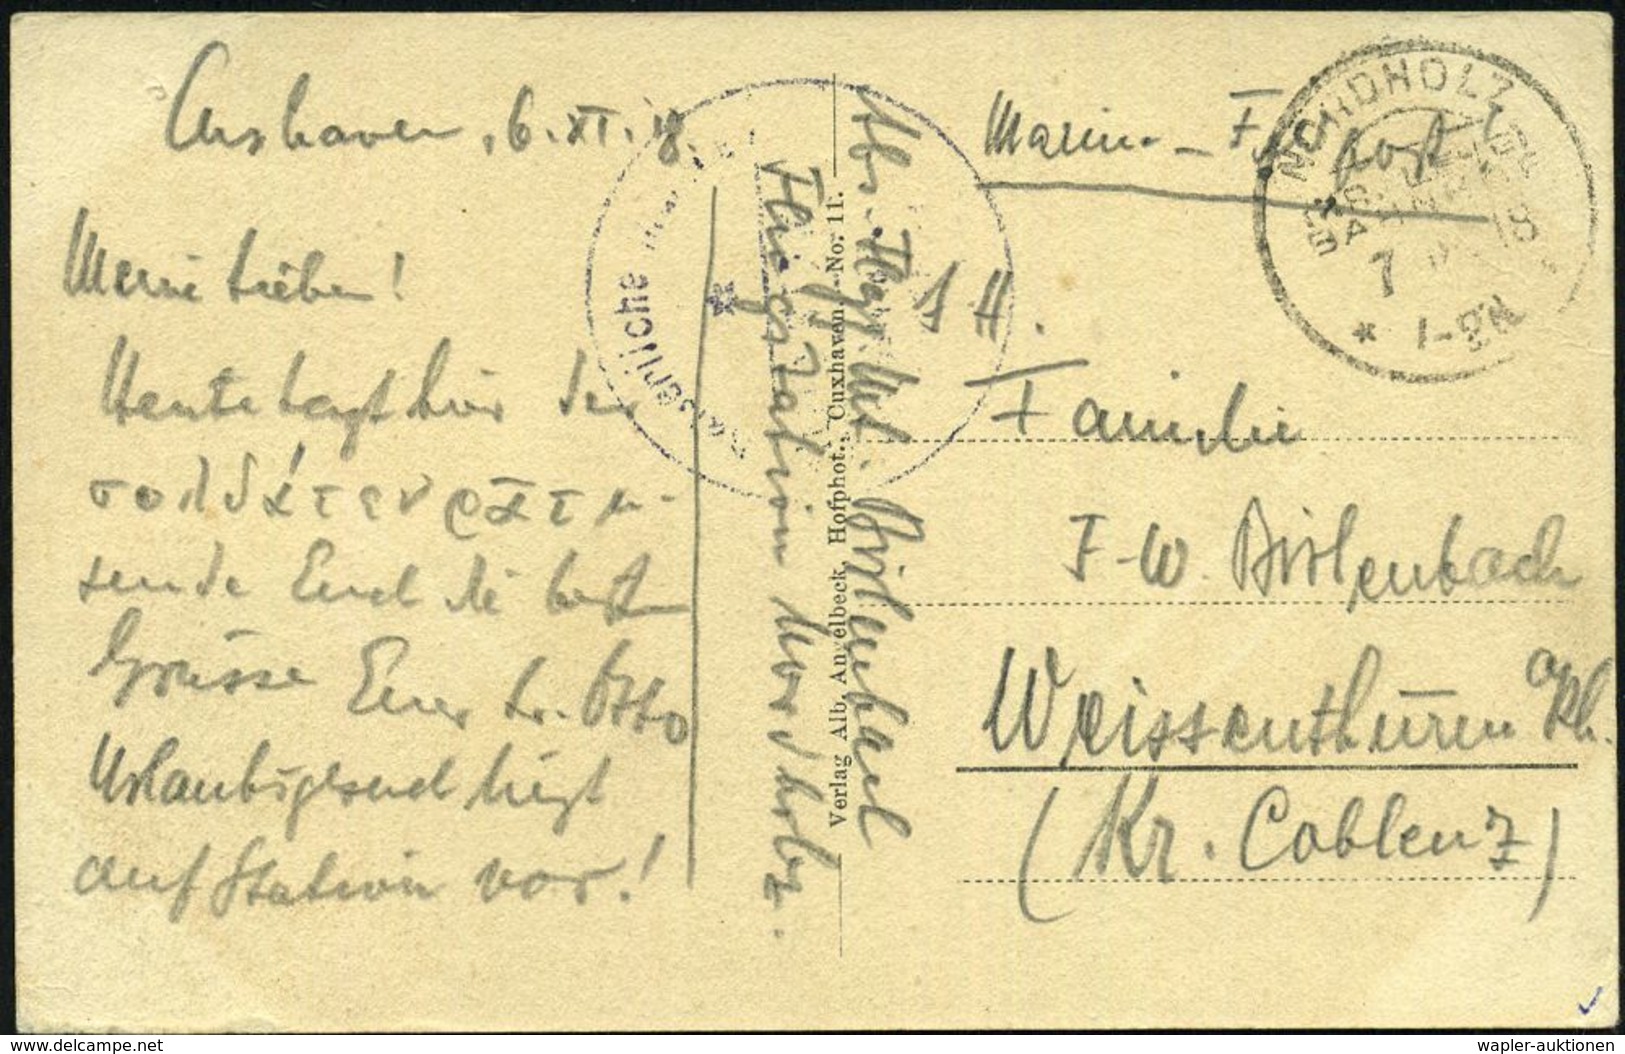 Cuxhaven, 6. XI. 18
Meine Lieben!
Heute tagt hier der
σολδάτενράτ u-
sende Euch die besten
Grüsse Euer lr. Otto
Urlaubsgesuch liegt
auf Station vor!
Kaiserliche
Abs. Flugmt. Birkenbach
Flugstation Nordholz.
Verlag Alb. Angelbeck, Hofphot., Cuxhaven. No. 11.
Marine-Feldpost!
NORDHOLZ
7
* 1-2N
Familie
F-W. Birkenbach
Weissenthurm a/Rh.
(Kr. Coblenz)
www.delcampe.net
wapler-auktionen